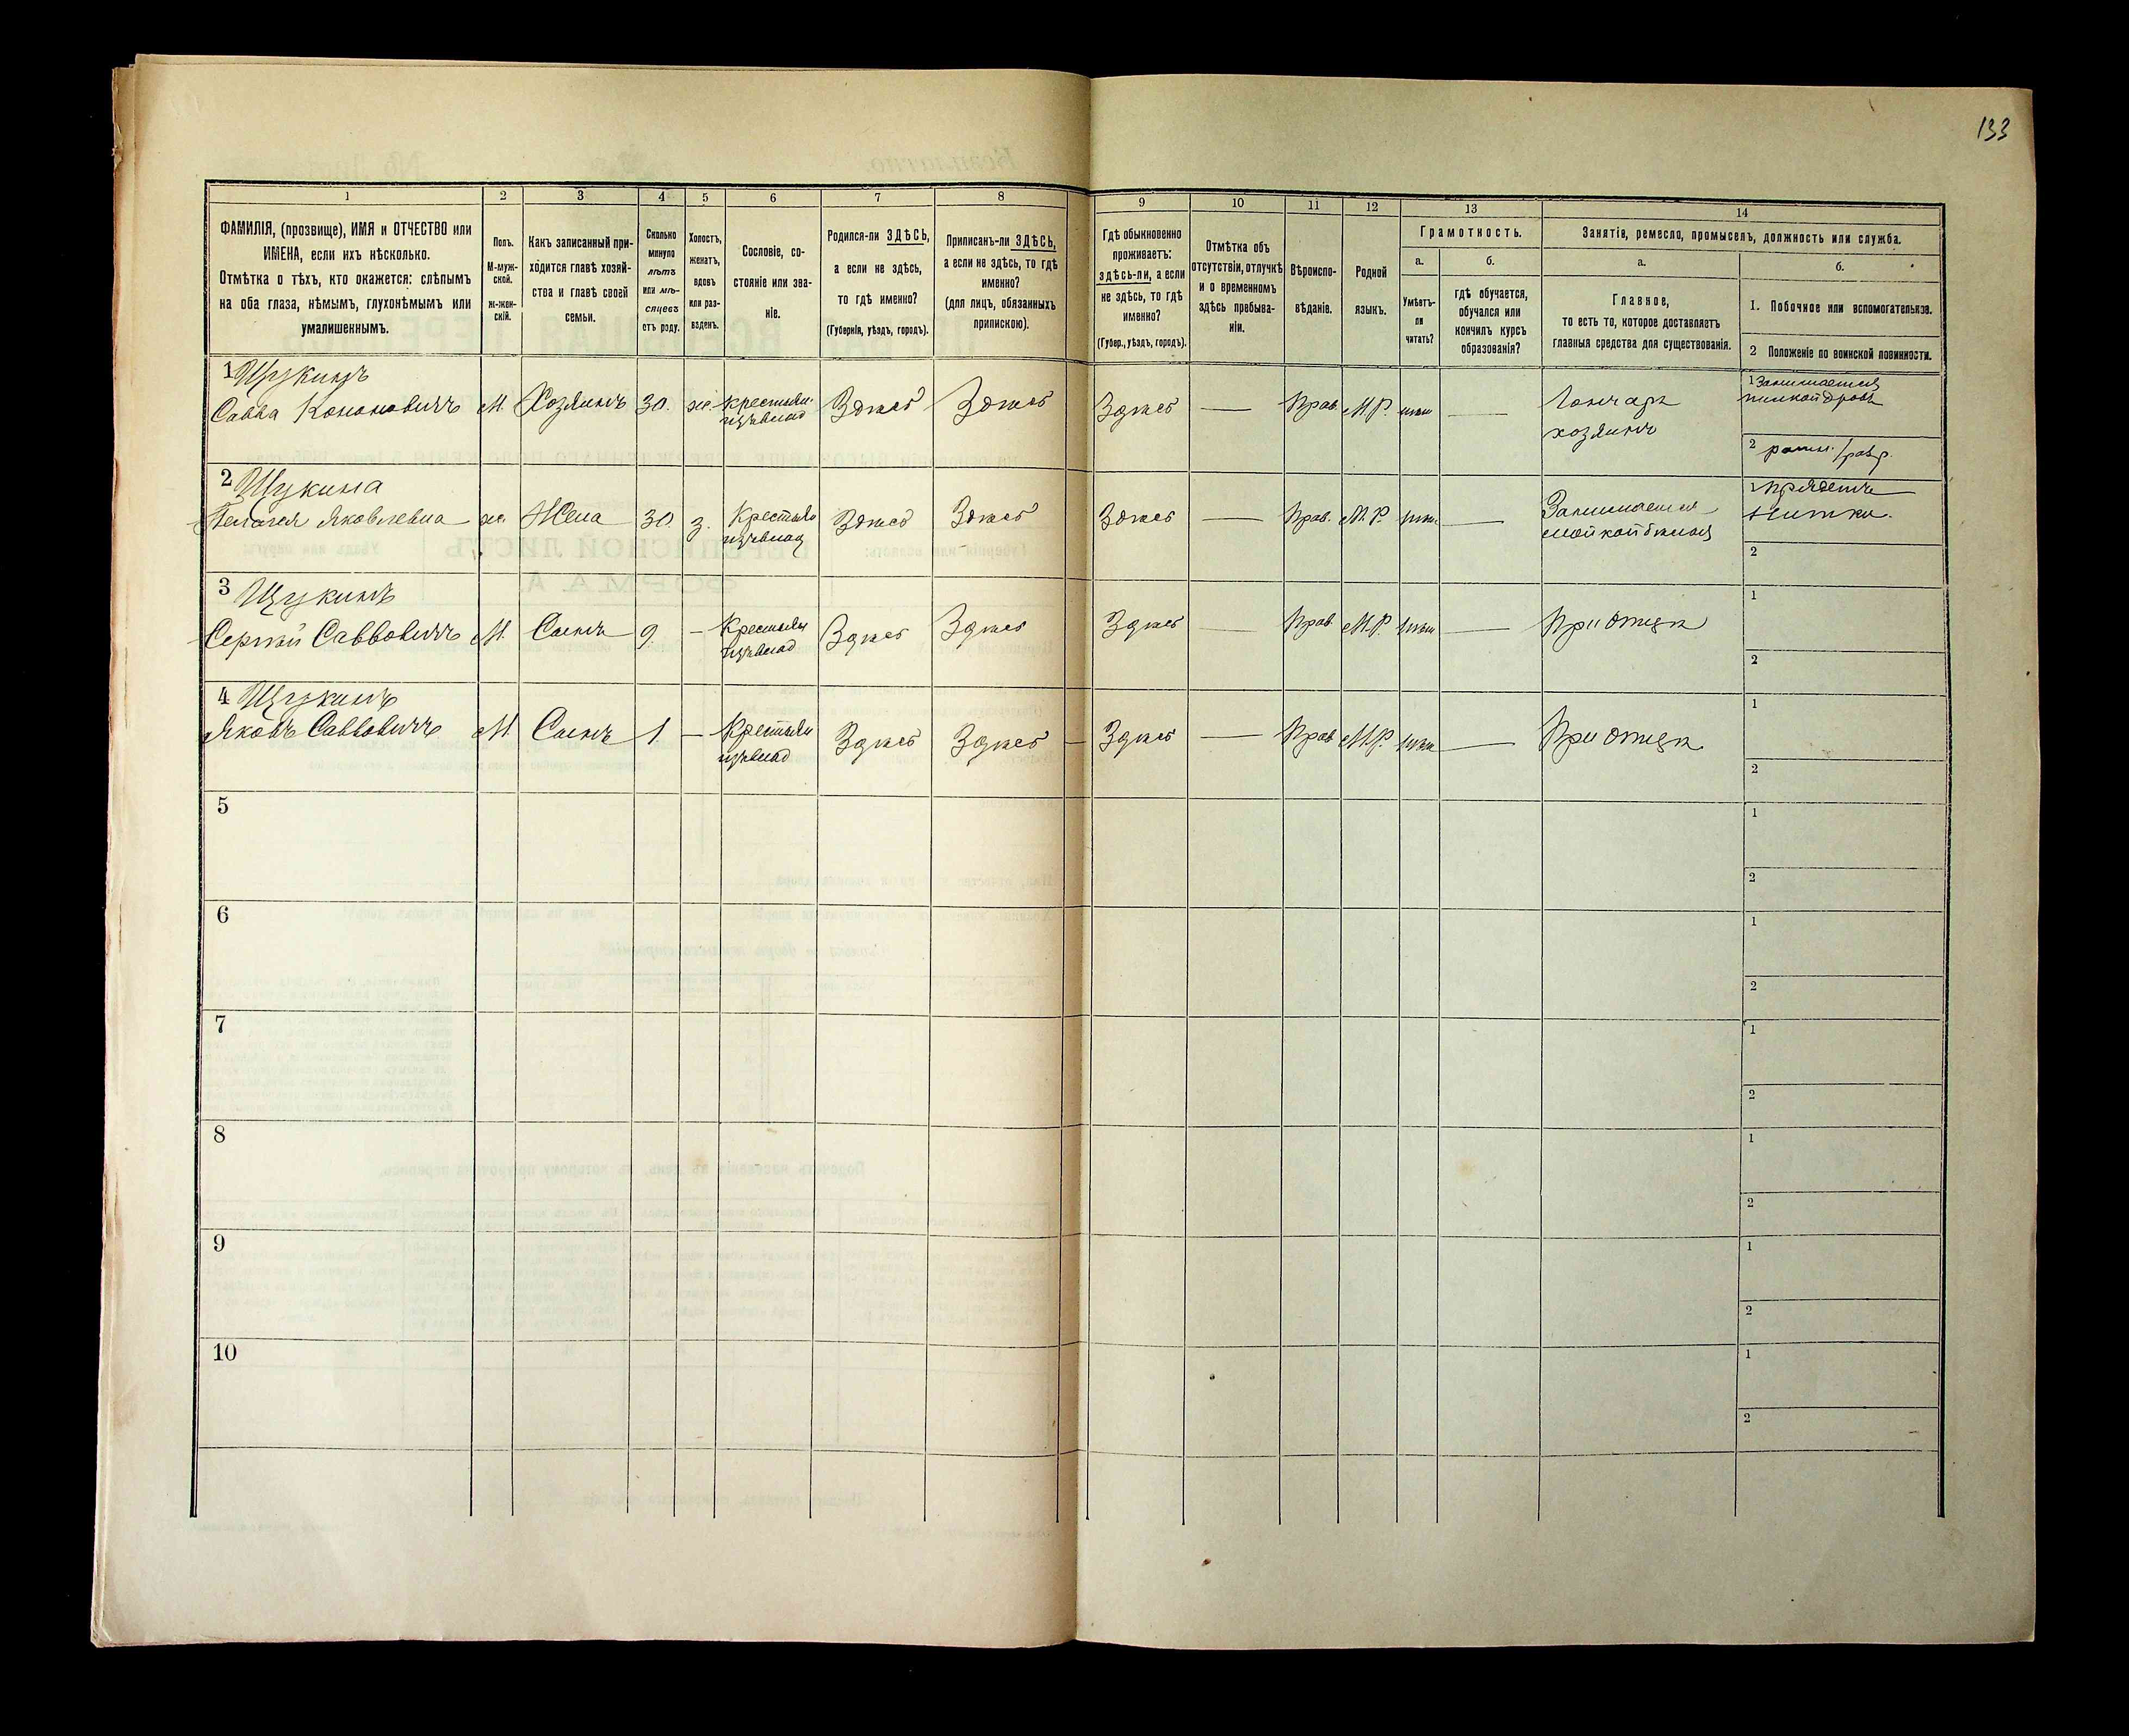 133
1 2 3 4 5 6 7 8 9 10 11 12 13 14
ФАМИЛІЯ, (прозвище), ИМЯ и ОТЧЕСТВО или
ИМЕНА, если ихъ нѣсколько.
Отмѣтка о тѣхъ, кто окажется: слѣпымъ
на оба глаза, нѣмымъ, глухонѣмымъ или
умалишеннымъ.
Полъ.
М-муж-
ской.
ж-жен-
скій.
Какъ записанный при-
ходится главѣ хозяй-
ства и главѣ своей
семьи.
Сколько
минуло
лѣтъ
или мѣ-
сяцевъ
отъ роду.
Холостъ,
женатъ,
вдовъ
или раз-
веденъ.
Сословіе, со-
стояніе или зва-
ніе.
Родился-ли ЗДѢСЬ,
а если не здѣсь,
то гдѣ именно?
(Губернія, уѣздъ, городъ).
Приписанъ-ли ЗДѢСЬ,
а если не здѣсь, то гдѣ
именно?
(для лицъ, обязанныхъ
припискою).
Гдѣ обыкновенно
проживаетъ:
здѣсь-ли, а если
не здѣсь, то гдѣ
именно?
(Губер., уѣздъ, городъ).
Отмѣтка объ
отсутствіи, отлучкѣ
и о временномъ
здѣсь пребыва-
ніи.
Вѣроиспо-
вѣданіе.
Родной
языкъ.
Грамотность.
а.
Умѣетъ-
ли
читать?
б.
гдѣ обучается,
обучался или
кончилъ курсъ
образованія?
Занятіе, ремесло, промыселъ, должность или служба.
а.
Главное,
то есть то, которое доставляетъ
главныя средства для существованія.
б.
1. Побочное или вспомогательное.
2 Положеніе по воинской повинности.
1 Щукинъ
Савва Кононовичъ М. Хозяинъ 30. же. Крестьян. Здѣсь Здѣсь Здѣсь — Прав. М.Р. нѣт — Гончаръ
изъ влад хозяинъ
1 Занимается
пилкой дровъ
2 ратн. 1 разр.
2 Щукина
Пелагея Яковлевна ж. Жена 30. з. Крестьян Здѣсь Здѣсь Здѣсь — Прав. М.Р. нѣт. — Занимается
изъ влад мойкой бѣлья
1 Прядетъ
Нитки.
2
3 Щукинъ
Сергѣй Саввовичъ М. Сынъ 9. — Крестьян Здѣсь Здѣсь Здѣсь — Прав. М.Р. нѣт — При отцѣ
изъ влад
1
2
4 Щукинъ
Яковъ Саввовичъ М Сынъ 1 — Крестьян Здѣсь Здѣсь Здѣсь — Прав М.Р. нѣт — При отцѣ
изъ влад
1
2
5
1
2
6
1
2
7
1
2
8
1
2
9
1
2
10
1
2